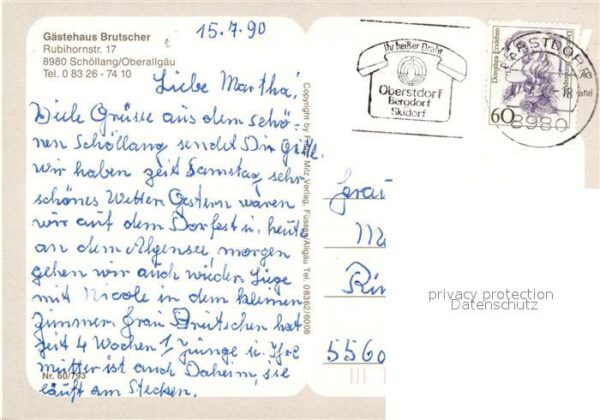 15.7.90
Gästehaus Brutscher
Rubihornstr. 17
8980 Schöllang/Oberallgäu
Tel. 0 83 26 - 74 10
Liebe Martha!
Viele Grüsse aus dem schö-
nen Schöllang sendet Dir
wir haben zeit Samstag sehr
schönes Wetter. Gestern waren
wir auf dem Dorfest u. heute
an dem Algensee, morgen
gehen wir auch wieder. Liege
mit Nicole in dem kleinen
zimmer. Frau Brutscher hat
zeit 4 Wochen 1 Junge u. Ihre
mutter ist auch Daheim, sie
läuft am Stecken.
Nr. 60/793
Copyright by Milz Verlag, Füssen/Allgäu Tel. 08362/6808
Ihr heißer Draht
Oberstdorf
Bergdorf
Skidorf
Dorothea Erxleben
60
OBERSTDORF
-18
8980
Frau
Ma
Rin
5560
privacy protection
Datenschutz